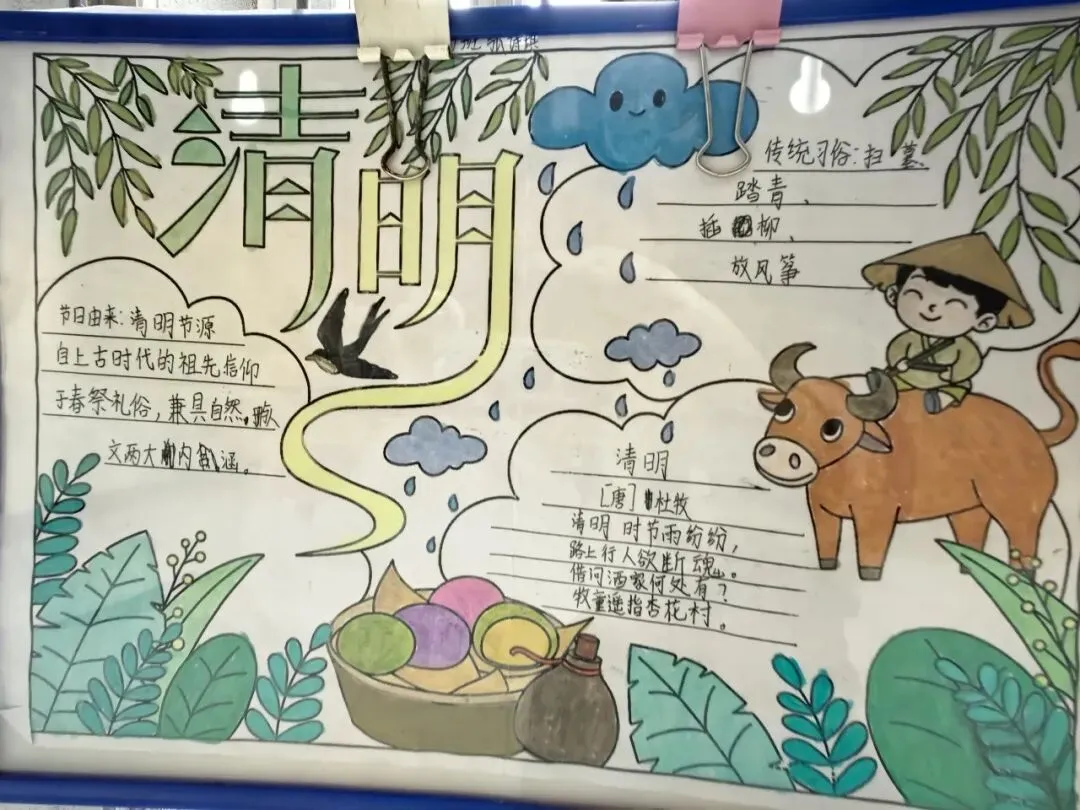 清明
节日由来:清明节源
自上古时代的祖先信仰
于春祭礼俗,兼具自然
文两大内涵。
传统习俗:扫墓、
踏青、
插柳、
放风筝
清明
[唐]杜牧
清明时节雨纷纷,
路上行人欲断魂。
借问酒家何处有?
牧童遥指杏花村。